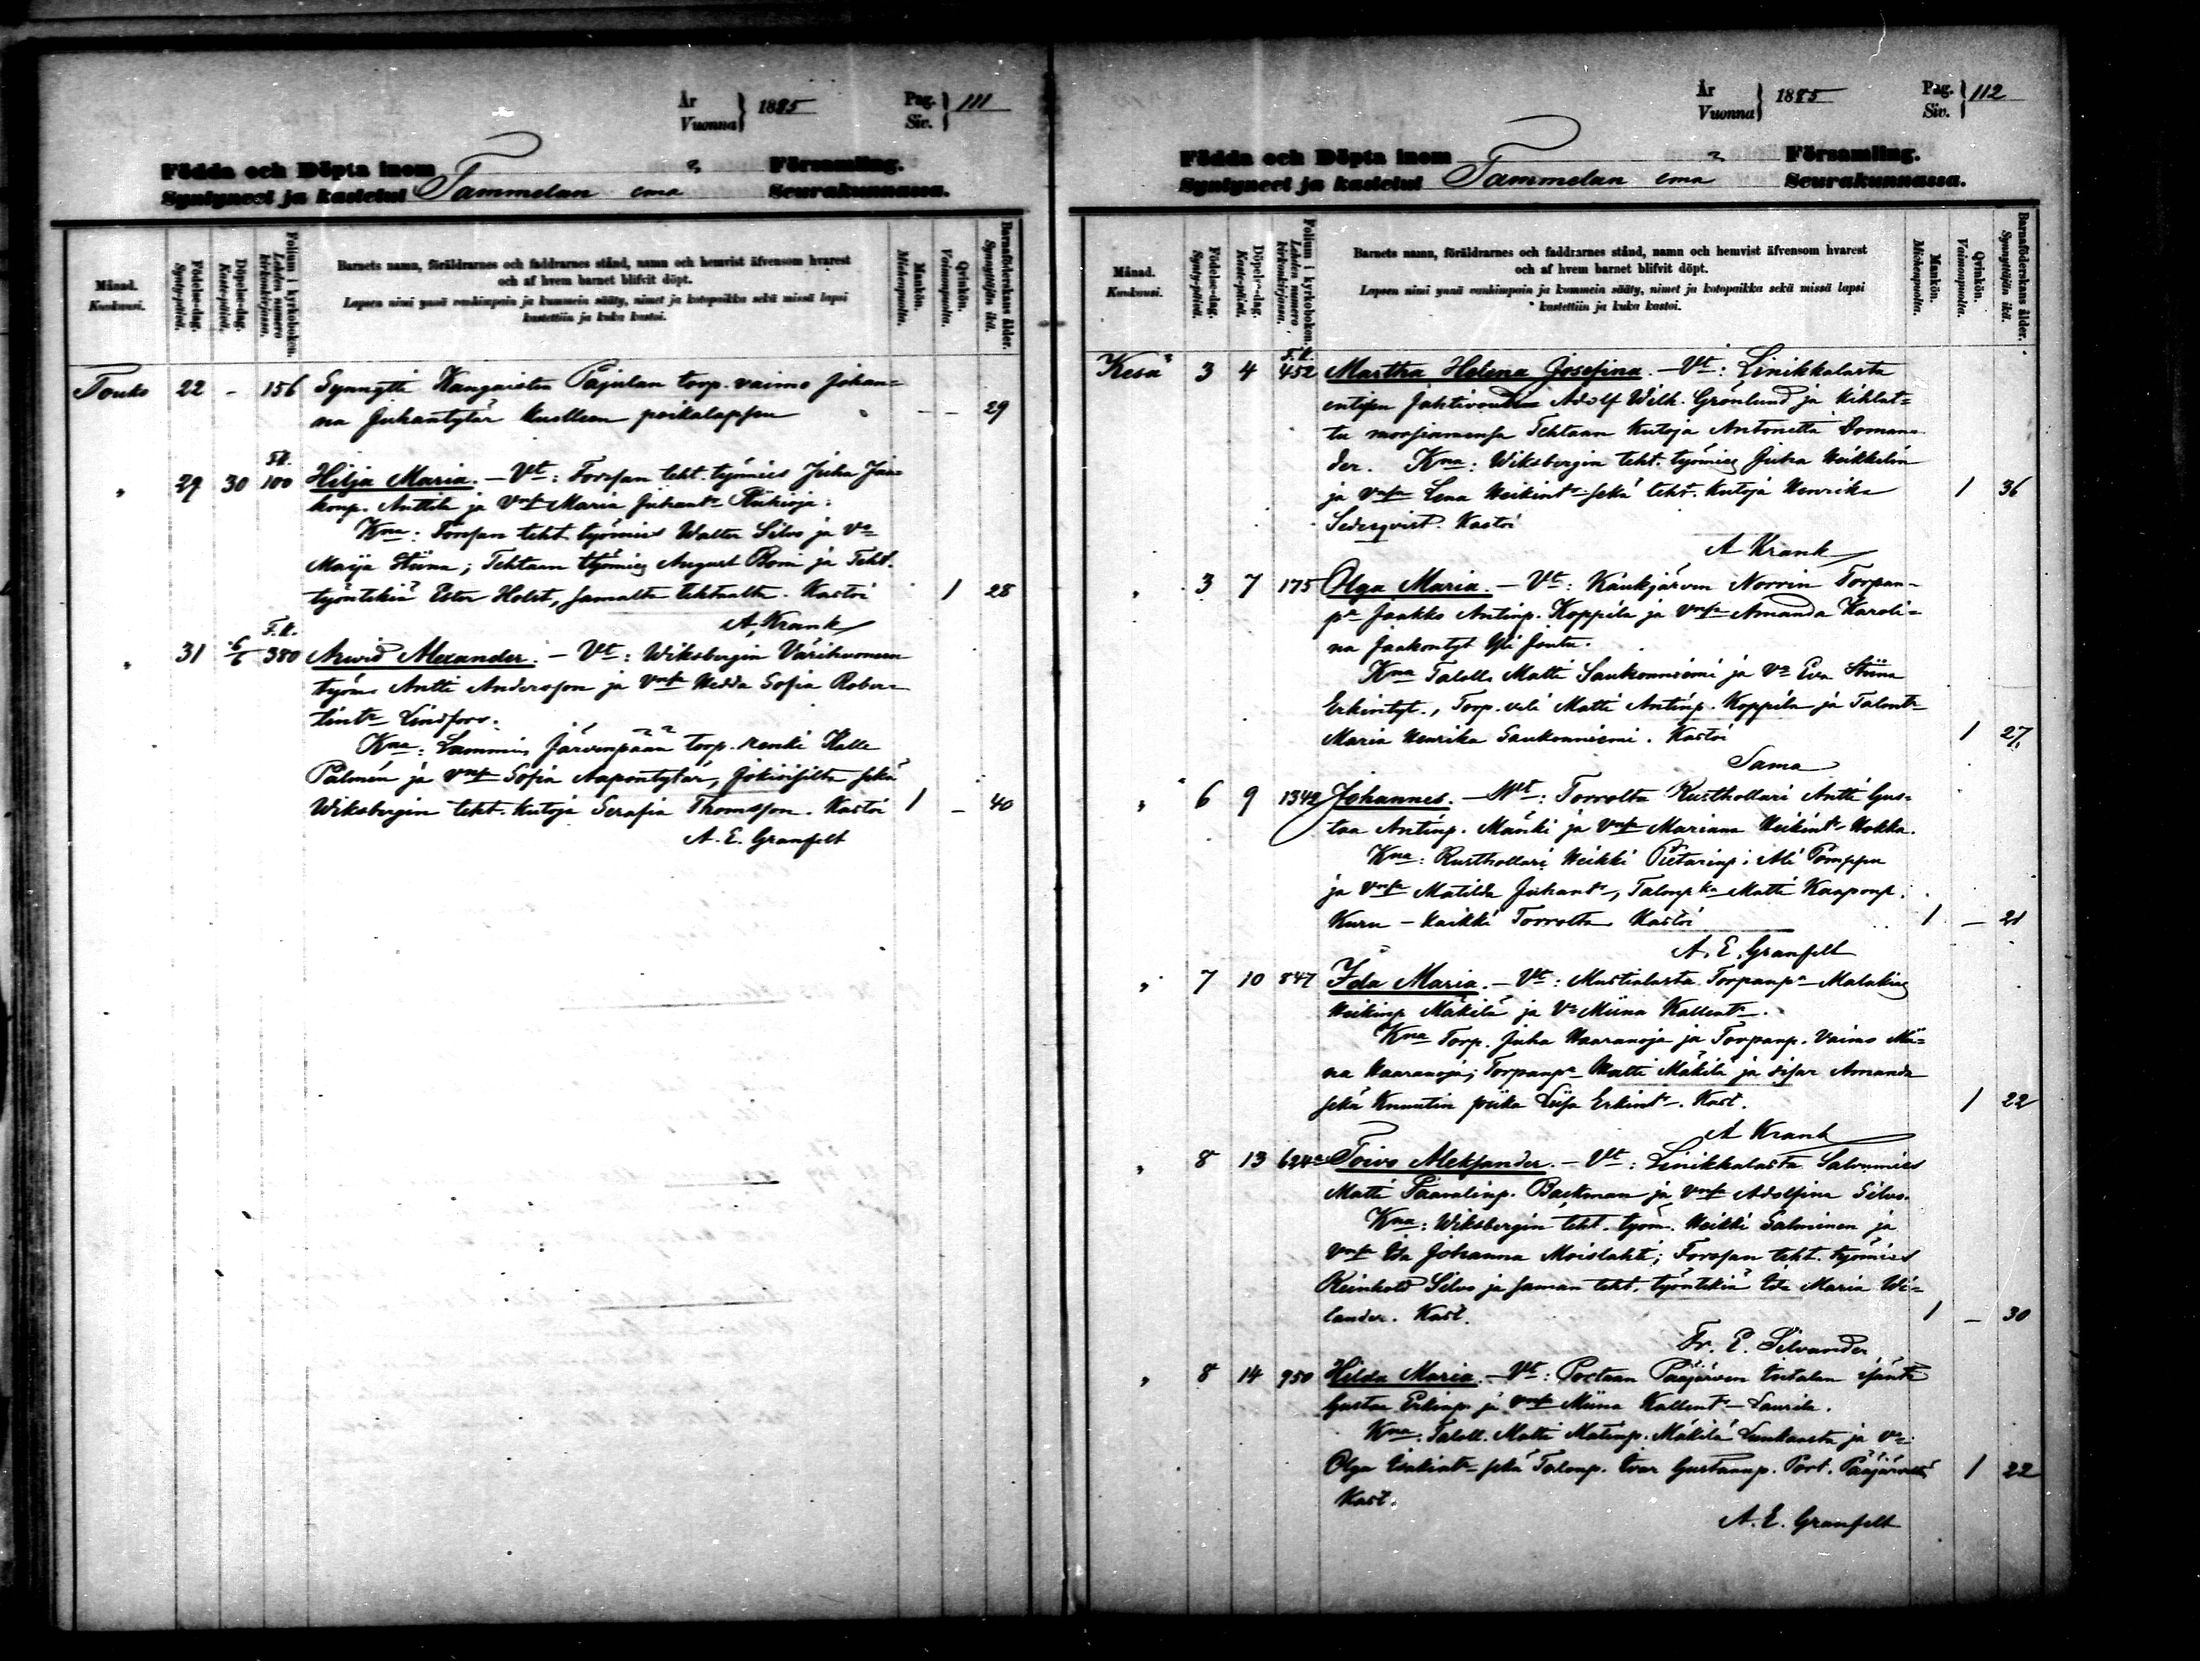 År
Vuonna } 1885
Pag.
Siv. } 111
Födda och Döpta inom
Syntyneet ja kastetut
Tammelan ema
Församling.
Seurakunnassa.
Månad.
Kuukausi.
Födelse-dag.
Synty-päivä.
Döpelse-dag.
Kaste-päivä.
Folium i kyrkoboken.
Lehden numero kirkonkirjassa.
Barnets namn, föräldrarnes och faddrarnes stånd, namn och hemvist äfvensom hvarest
och af hvem barnet blifvit döpt.
Lapsen nimi ynnä vanhimpain ja kummein sääty, nimet ja kotopaikka sekä missä lapsi
kastettiin ja kuka kastoi.
Mankön.
Miehenpuolia.
Qvinkön.
Vaimonpuolia.
Barnaföderskans ålder.
Synnyttäjän ikä.
Touko 22 - 156 Synnytti Kangaisten Pajulan torp. vaimo Johan-
na Juhantytär kuolleen poikalapsen - - 29
" 29 30 F.k. 100 Hilja Maria. - Vt: Forssan teht. työmies Juha Jaa-
konp. Anttila ja Vmsa Maria Juhantr
Kna: Forssan teht. työmies Walter Silvo ja Va
Maija Stiina; Tehtaan työmies August Bom ja Teht.
työntekiä Ester Holst, samalta tehtaalta. Kastoi 1 28
A. Krank
" 31 6/6 F.k. 380 Arvid Alexander. - Vt: Wiksbergin Värihuoneen
työm. Antti Andersson ja Vmsa Hedda Sofia Rober-
tintr Lindfors.
Kna: Lammin Järvenpään torp. renki Kalle
Palmén ja Vmsa Sofia Aapontytär, Jokioisilta sekä
Wiksbergin teht. kutoja Serafia Thomsson. Kastoi 1 - 40
A. E. Granfelt
År
Vuonna } 1885
Pag.
Siv. } 112
Födda och Döpta inom
Syntyneet ja kastetut
Tammelan ema
Församling.
Seurakunnassa.
Månad.
Kuukausi.
Födelse-dag.
Synty-päivä.
Döpelse-dag.
Kaste-päivä.
Folium i kyrkoboken.
Lehden numero kirkonkirjassa.
Barnets namn, föräldrarnes och faddrarnes stånd, namn och hemvist äfvensom hvarest
och af hvem barnet blifvit döpt.
Lapsen nimi ynnä vanhimpain ja kummein sääty, nimet ja kotopaikka sekä missä lapsi
kastettiin ja kuka kastoi.
Mankön.
Miehenpuolia.
Qvinkön.
Vaimonpuolia.
Barnaföderskans ålder.
Synnyttäjän ikä.
Kesä 3 4 F.k. 452 Martha Helena Josefina. - Vt: Linikkalasta
entisen Jahtivoudin Adolf Wilh. Grönlund ja kihlat-
tu morsiamensa Tehtaan kutoja Antonetta Doman-
der. Kna: Wiksbergin teht. työmies Juha Heikkelin
ja Vmsa Lena Heikintr sekä teht. kutoja Henrika 1 36
Sederqvist. Kastoi
A Krank
" 3 7 175 Olga Maria. - Vt: Kaukjärven Norrin Torpan-
pa Jaakko Antinp. Koppila ja Vmsa Amanda Karoli-
na Jaakontyt Yli Jontu.
Kna Taloll. Matti Saukonniemi ja Va Eva Stiina
Erkintyt., Torp. veli Matti Antinp. Koppila ja Talontr
Maria Henrika Saukonniemi. Kastoi 1 27
Sama
" 6 9 1342 Johannes. - Vt: Torrolta Rusthollari Antti Gus-
taa Antinp. Mänki ja Vmsa Mariana Heikintr Hokka.
Kna: Rusthollari Heikki Pietarinp. Ali Pomppu
ja Vmsa Matilda Juhantr, Talonp ka Matti Kaaponp.
Kuru - kaikki Torrolta Kastoi 1 - 21
A. E. Granfelt
" 7 10 847 Ida Maria. - Vt: Mustialasta Torpanpa Malakias
Heikinp Mäkilä ja Va Miina Kallentr.
Kna Torp. Juha Haaranoja ja Torpanp. vaimo Mii-
na Haaranoja; Torpanpa Matti Mäkilä ja sisar Amanda
sekä Knuutin piika Liisa Erkintr. Kast. 1 22
A Krank
" 8 13 624a Toivo Aleksander. - Vt: Linikkalasta Salvumies
Matti Paavalinp. Backman ja Vmsa Adolfina Silvo.
Kna: Wiksbergin teht. työm. Heikki Salminen ja
Vmsa Ida Johanna Moislahti; Forssan teht. työmies
Reinhold Silvo ja saman teht. työntekiä Ida Maria Wi-
lander. Kast. 1 - 30
Fr. E. Silvander
" 8 14 950 Hilda Maria. - Vt: Portaan Pääjärven talon isäntä
Gustaa Erkinp. ja Vmsa Miina Kallentr Laurila.
Kna. Taloll. Matti Matinp. Mäkilä Lunkaasta ja Va
Olga Isakintr sekä Talonp. Ivar Gustaanp. Port. Pääjärveltä 1 22
Kast.
A. E. Granfelt